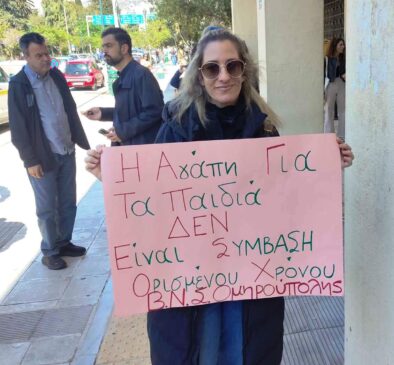 Η Αγάπη Για
Τα Παιδιά
ΔΕΝ
Είναι ΣΥΜΒΑΣΗ
Ορισμένου Χρόνου
Β.Ν.Σ Ομηρούπολης